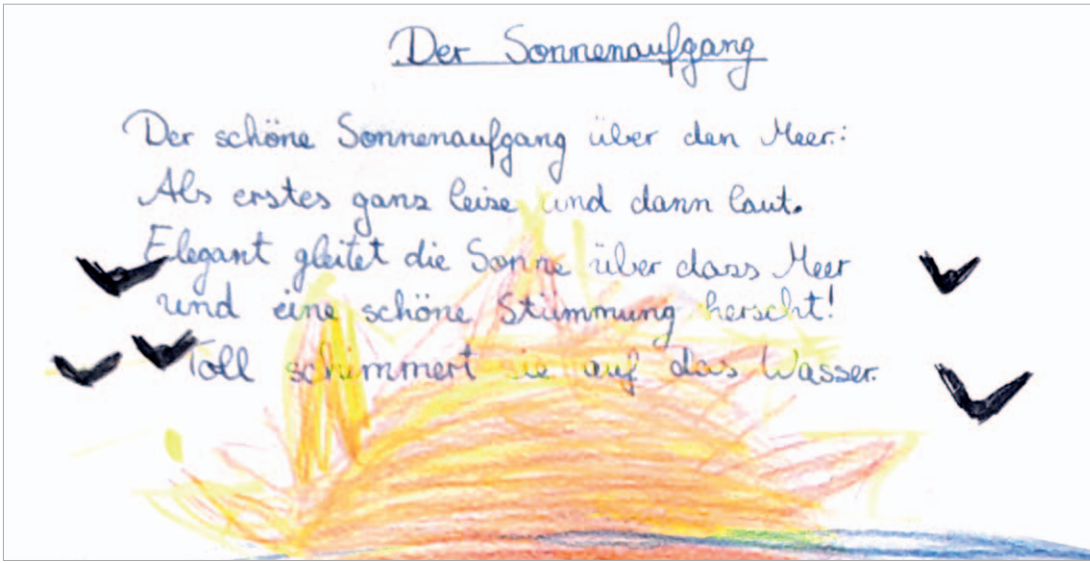 Der Sonnenaufgang
Der schöne Sonnenaufgang über den Meer:
Als erstes ganz leise und dann laut.
Elegant gleitet die Sonne über dass Meer
und eine schöne Stimmung herscht!
Toll schimmert sie auf das Wasser.